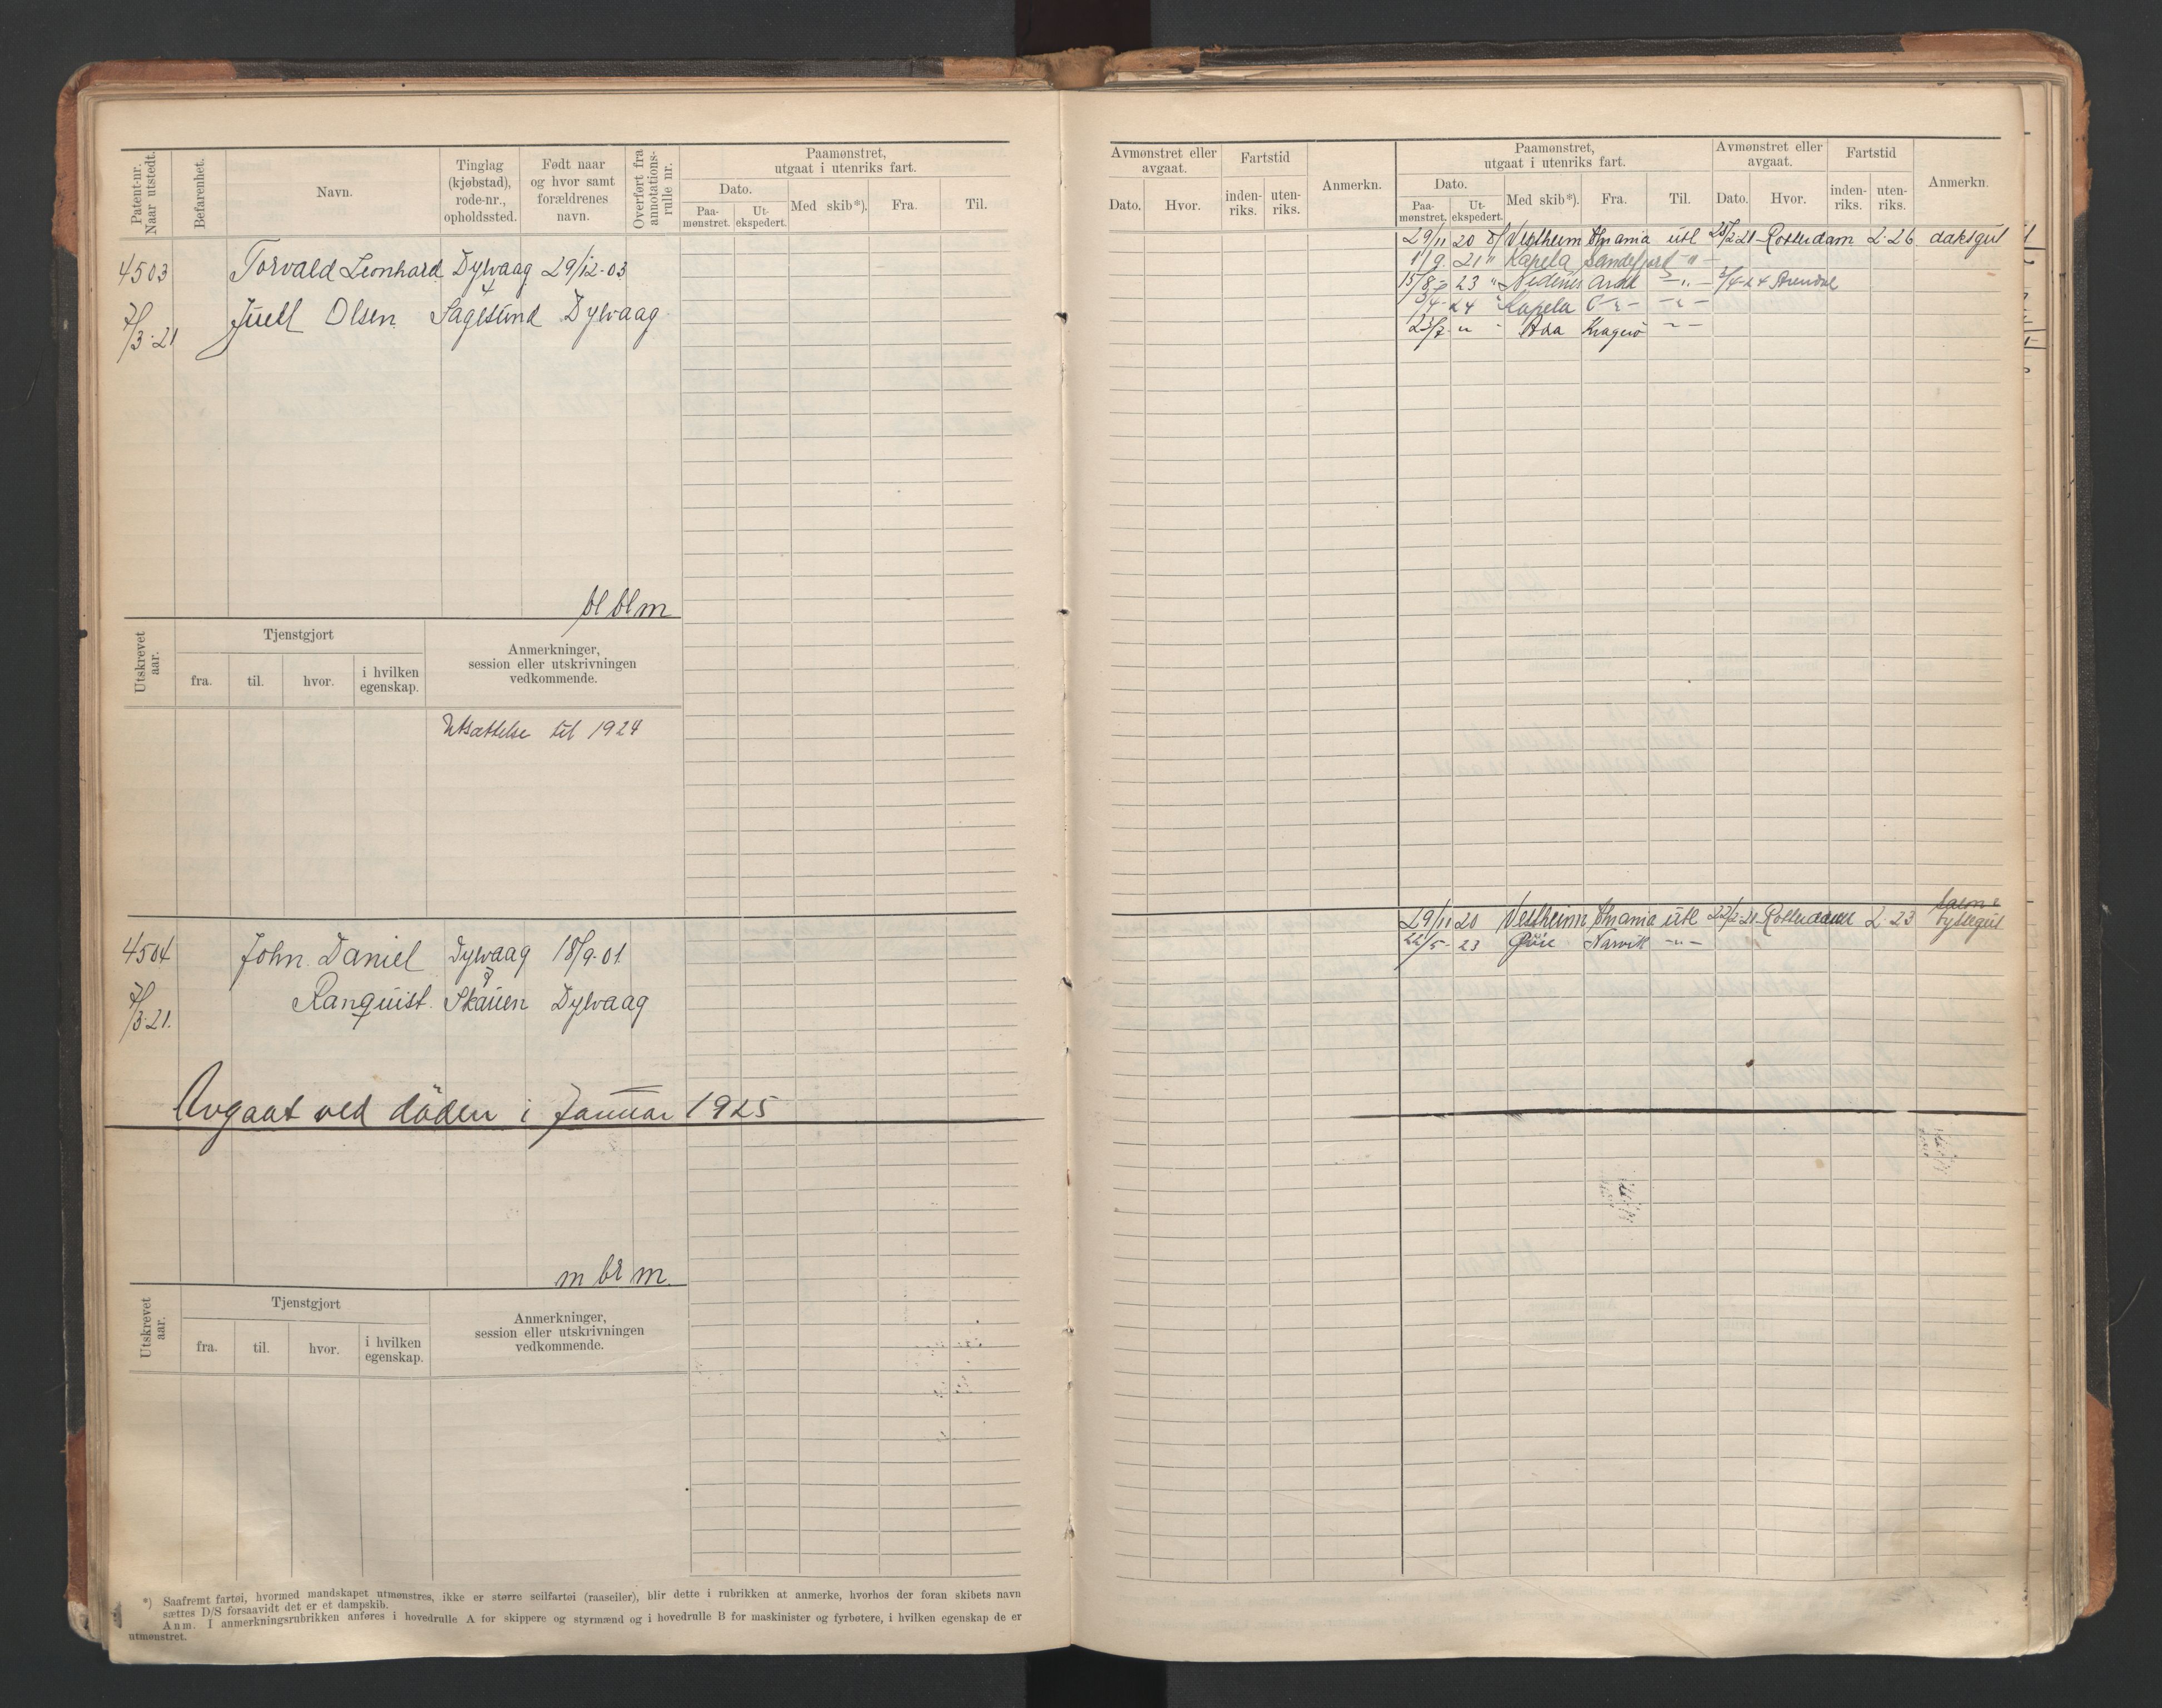 Patent-nr. Naar utstedt.
Befarenhet.
Navn.
Tinglag (kjøbstad), rode-nr., opholdssted.
Født naar og hvor samt forældrenes navn.
Overført fra annotations-rulle nr.
Paamønstret, utgaat i utenriks fart.
Dato.
Paa-mønstret.
Ut-ekspedert.
Med skib*).
Fra.
Til.
4503 Torvald Leonhard Dypvaag 29/12-03
7/3-21 Juell Olsen Sagesund Dypvaag
bl bl m
Utskrevet aar.
Tjenstgjort
fra. til. hvor. i hvilken egenskap.
Anmerkninger, session eller utskrivningen vedkommende.
Utsættelse til 1924
4504 John Daniel Dypvaag 18/9-01
7/3-21. Ranquist. Skauen Dypvaag
Avgaat ved döden i Januar 1925
m br m.
Utskrevet aar.
Tjenstgjort
fra. til. hvor. i hvilken egenskap.
Anmerkninger, session eller utskrivningen vedkommende.
*) Saafremt fartøi, hvormed mandskapet utmønstres, ikke er større seilfartøi (raaseiler), blir dette i rubrikken at anmerke, hvorhos der foran skibets navn
sættes D/S forsaavidt det er et dampskib.
Anm. I anmerkningsrubrikken anføres i hovedrulle A for skippere og styrmænd og i hovedrulle B for maskinister og fyrbøtere, i hvilken egenskap de er
utmønstret.
Avmønstret eller avgaat.
Dato. Hvor.
Fartstid
inden-riks. uten-riks.
Anmerkn.
Paamønstret, utgaat i utenriks fart.
Dato.
Paa-mønstret. Ut-ekspedert.
Med skib*). Fra. Til.
Avmønstret eller avgaat.
Dato. Hvor.
Fartstid
inden-riks. uten-riks.
Anmerkn.
29/11 20 Vestheim Khania utl 25/2-21 Rotterdam 2-26 daksgut
1/9. 21 " Kapela Sandefjord - " -
15/8- 23 " Nedenes Ardal - " - 3/4-24 Arendal
3/4- 24 " Kapela
23/7 - " - Ada Kragerö - " -
29/11 20 Vestheim Khania utl 22/2-21 Rotterdam 2-23 byssegut
22/5- 23 Narvik - " -